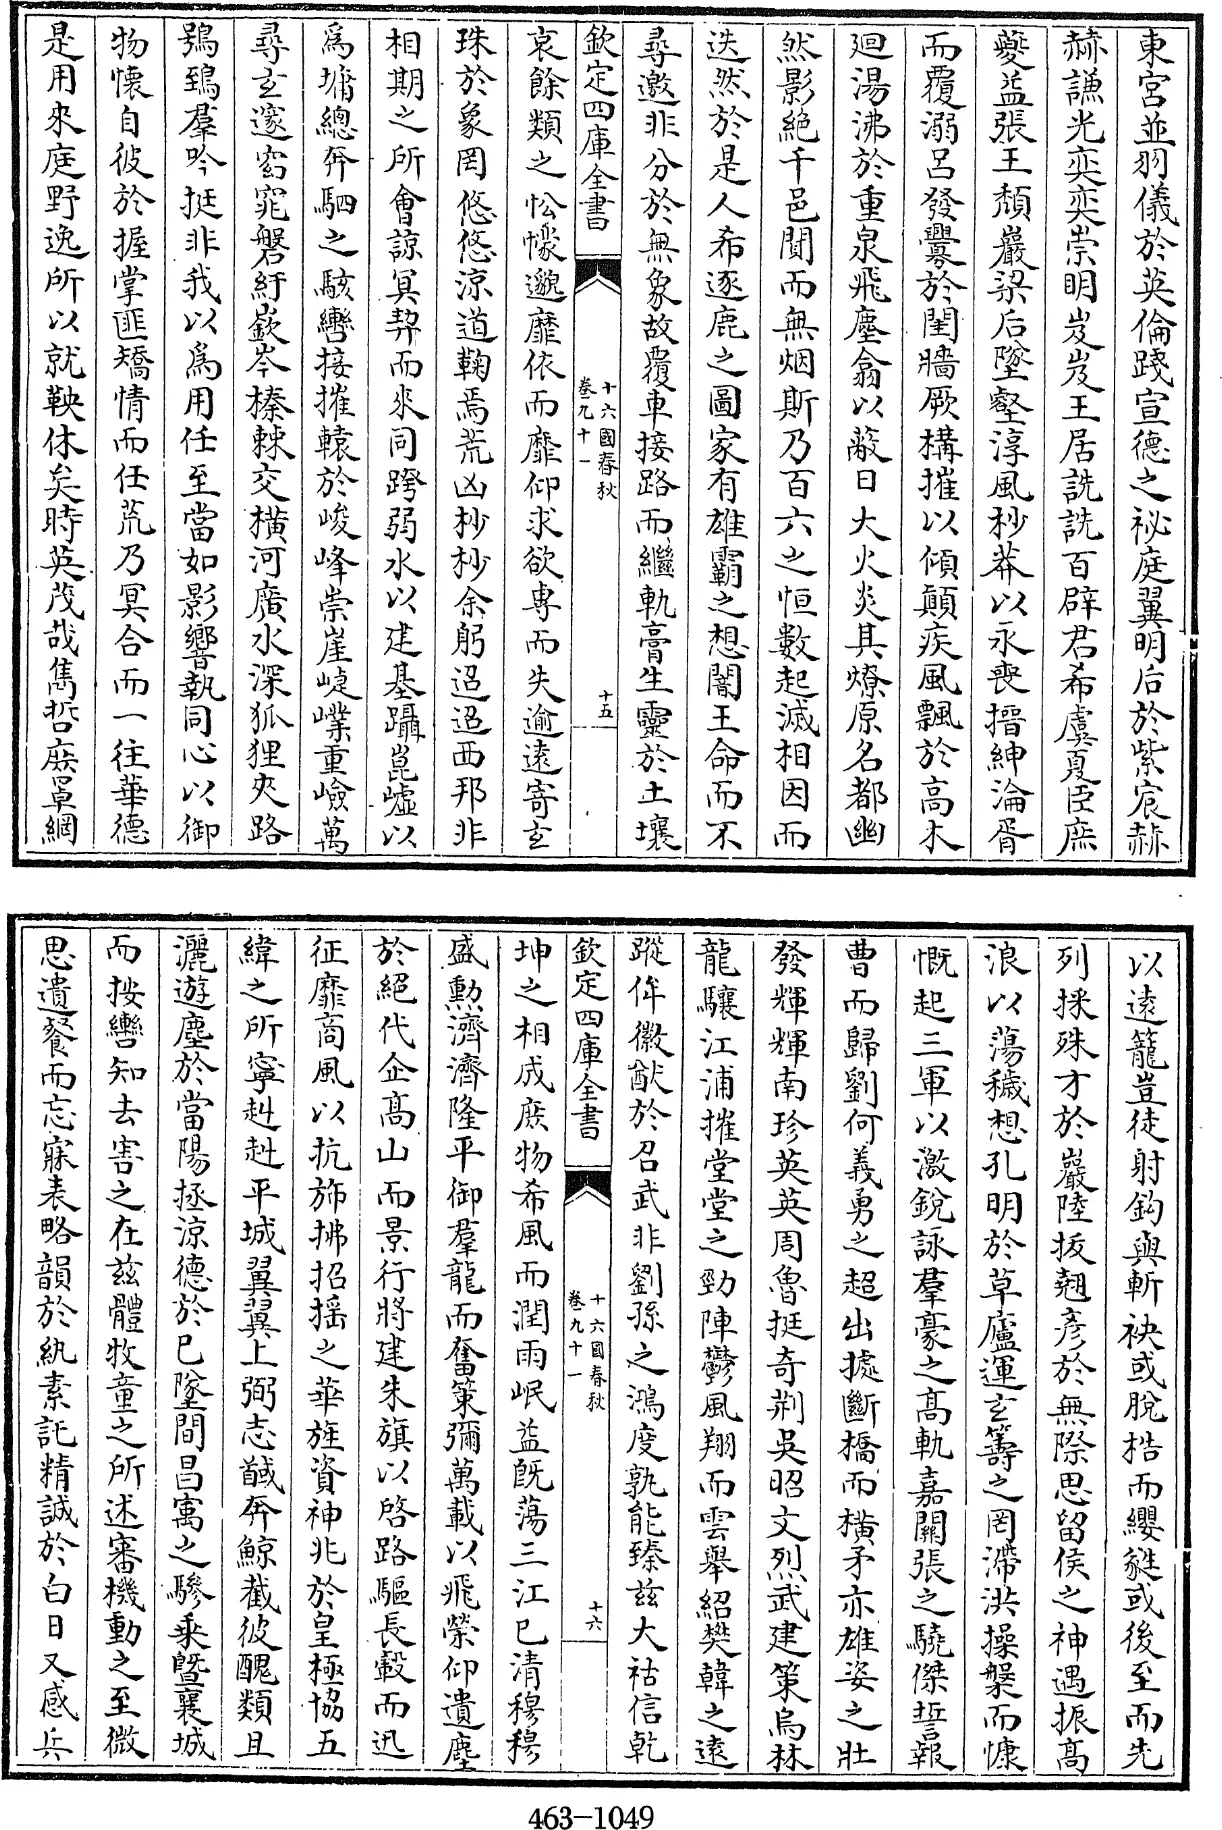 東宮並羽儀於英倫踐宣德之祕庭翼明后於紫宸赫
赫謙光奕奕崇明岌岌王居詵詵百辟君希虞夏臣庶
夔益張王頽巖梁后墜壑淳風杪莽以永喪搢紳淪胥
而覆溺呂發釁於閨牆厥構摧以傾顛疾風飄於高木
廻湯沸於重泉飛塵翕以蔽日大火炎其燎原名都幽
然影絶千邑闃而無烟斯乃百六之恒數起滅相因而
迭然於是人希逐鹿之圖家有雄霸之想闇王命而不
尋邀非分於無象故覆車接路而繼軌膏生靈於土壤
欽定四庫全書
十六國春秋
卷九十一
十五
哀餘類之忪懞邈靡依而靡仰求欲專而失逾遠寄玄
珠於象罔悠悠涼道鞠焉荒凶杪杪余躬迢迢西邦非
相期之所會諒冥契而來同跨弱水以建基躡崑墟以
爲墉總奔駟之駭轡接摧轅於峻峰崇崖崨嶫重嶮萬
尋玄邃窈窕磐紆嶔岑榛棘交横河廣水深狐狸夾路
鴞鵄羣吟挺非我以爲用任至當如影響執同心以御
物懷自彼於握掌匪矯情而任荒乃冥合而一往華德
是用來庭野逸所以就鞅休矣時英茂哉雋哲庶罩網
以遠籠豈徒射鈎與斬袂或脫梏而纓蕤或後至而先
列採殊才於巖陸拔翹彥於無際思留侯之神遇振高
浪以蕩穢想孔明於草廬運玄籌之罔滯洪操槃而慷
慨起三軍以激銳詠羣豪之高軌嘉關張之驍傑誓報
曹而歸劉何義勇之超出據斷橋而横矛亦雄姿之壯
發輝輝南珍英英周魯挺奇荆吳昭文烈武建策烏林
龍驤江浦摧堂堂之勁陣鬱風翔而雲舉紹樊韓之遠
蹤侔徽猷於召武非劉孫之鴻度孰能臻兹大祜信乾
欽定四庫全書
十六國春秋
卷九十一
十六
坤之相成庶物希風而潤雨岷益既蕩三江已清穆穆
盛勲濟濟隆平御羣龍而奮策彌萬載以飛榮仰遺塵
於絕代企高山而景行將建朱旗以啓路驅長轂而迅
征靡商風以抗斾拂招揺之華旌資神兆於皇極協五
緯之所寧赳赳平城翼翼上弼志馘奔鯨截彼醜類且
灑遊塵於當陽拯涼德於已墜間昌寓之驂乘暨襄城
而按轡知去害之在兹體牧童之所述審機動之至微
思遺餐而忘寐表略韻於紈素託精誠於白日又感兵
463-1049